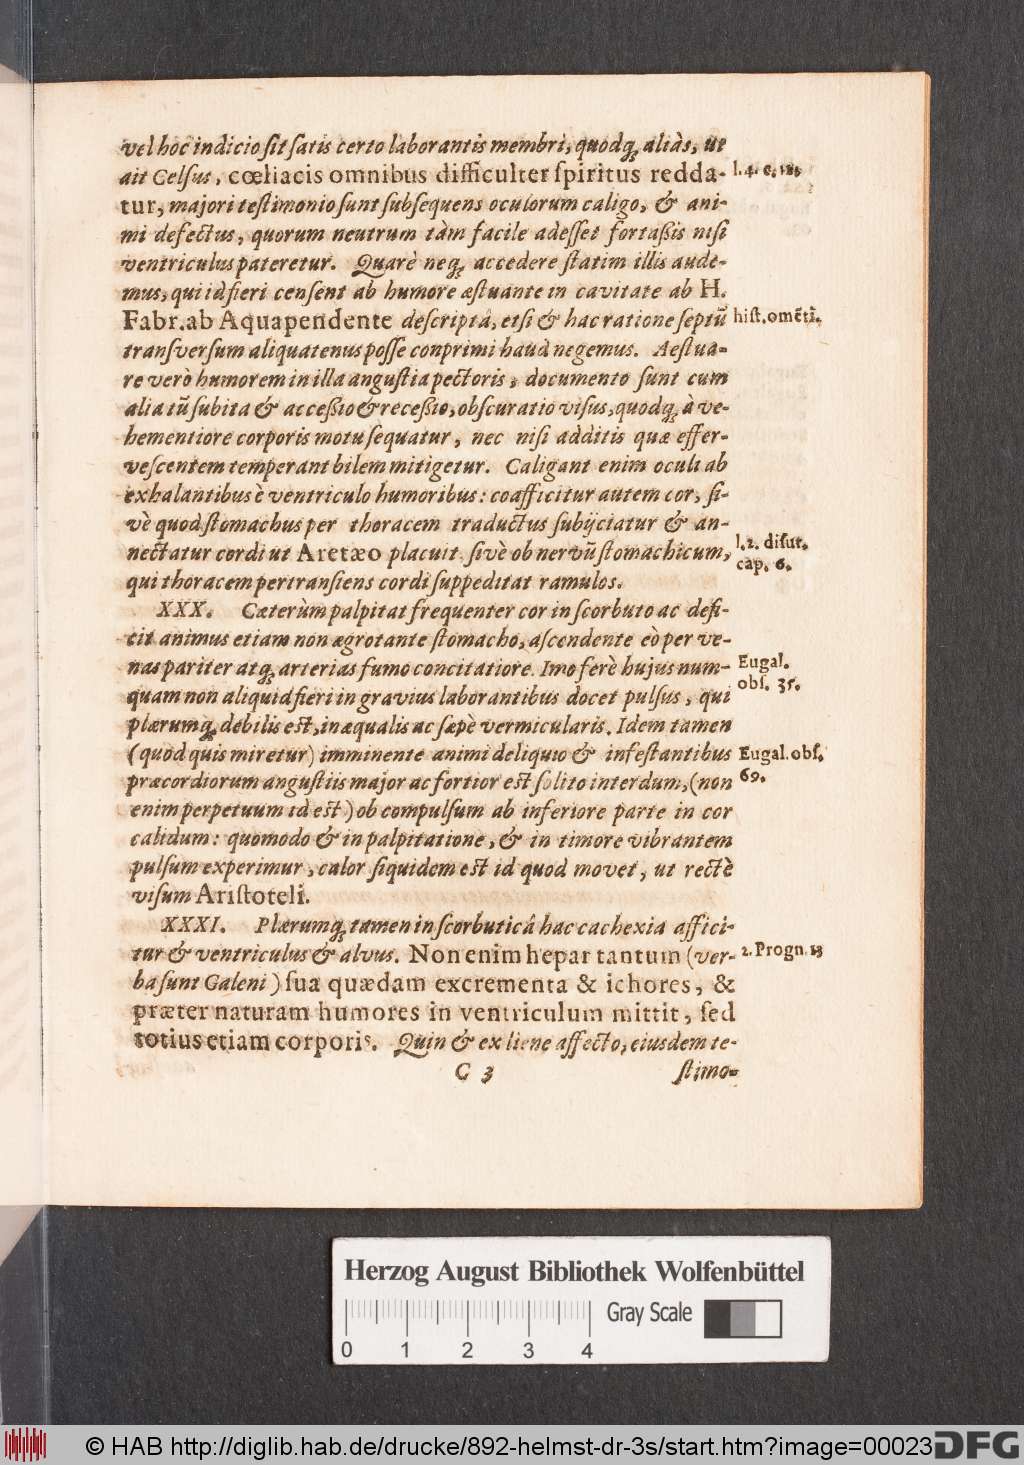 vel hoc indicio sit satis certo laborantis membri, quodq́; aliàs, ut
ait Celsus, cœliacis omnibus difficulter spiritus redda- l. 4. c. 12.
tur, majori testimonio sunt subsequens oculorum caligo, & ani-
mi defectus, quorum neutrum tàm facile adesset fortaßis nisi
ventriculus pateretur. Quarè neq́; accedere statim illis aude-
mus, qui id fieri censent ab humore æstuante in cavitate ab H.
Fabr. ab Aquapendente descriptâ, etsi & hac ratione septũ hist. omẽti.
transversum aliquatenus posse conprimi haud negemus. Aestua-
re verò humorem in illa angustia pectoris, documento sunt cum
alia tũ subita & acceßio & receßio, obscuratio visus, quodq́; à ve-
hementiore corporis motu sequatur, nec nisi additis quæ effer-
vescentem temperant bilem mitigetur. Caligant enim oculi ab
exhalantibus è ventriculo humoribus: coafficitur autem cor, si-
vè quod stomachus per thoracem traductus subijciatur & an-
nectatur cordi ut Aretæo placuit. sivè ob nervũ stomachicum, l. 2. diſut. cap. 6.
qui thoracem pertransiens cordi suppeditat ramulos.
XXX. Cæterùm palpitat frequenter cor in scorbuto ac defi-
cit animus etiam non ægrotante stomacho, ascendente eò per ve-
nas pariter atq́; arterias fumo concitatiore. Imo ferè hujus num- Eugal.
quam non aliquid fieri in gravius laborantibus docet pulsus, qui obs. 35.
plærumq́; debilis est, inæqualis ac sæpè vermicularis. Idem tamen
(quod quis miretur) imminente animi deliquio & infestantibus Eugal. obs.
præcordiorum angustiis major ac fortior est solito interdum, (non 69.
enim perpetuum id est) ob compulsum ab inferiore parte in cor
calidum: quomodo & in palpitatione, & in timore vibrantem
pulsum experimur, calor siquidem est id quod movet, ut rectè
visum Aristoteli.
XXXI. Plærumq́; tamen in scorbuticâ hac cachexia affici-
tur & ventriculus & alvus. Non enim hepar tantum (ver- 2. Progn. 13
ba sunt Galeni) sua quædam excrementa & ichores, &
præter naturam humores in ventriculum mittit, sed
totius etiam corporis. Quin & ex liene affecto, eiusdem te-
C 3 stimo-
Herzog August Bibliothek Wolfenbüttel
Gray Scale
0 1 2 3 4
© HAB http://diglib.hab.de/drucke/892-helmst-dr-3s/start.htm?image=00023
DFG